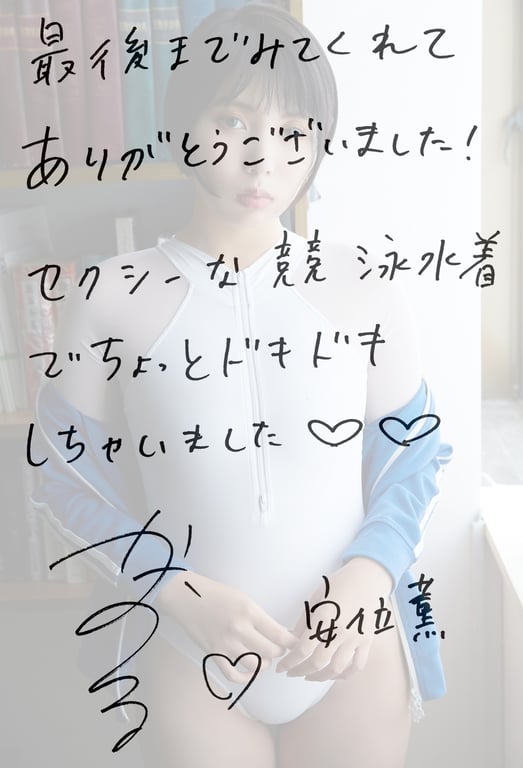 最後までみてくれて
ありがとうございました!
セクシーな競泳水着
でちょっとドキドキ
しちゃいました♡♡
かおる♡
安位薫